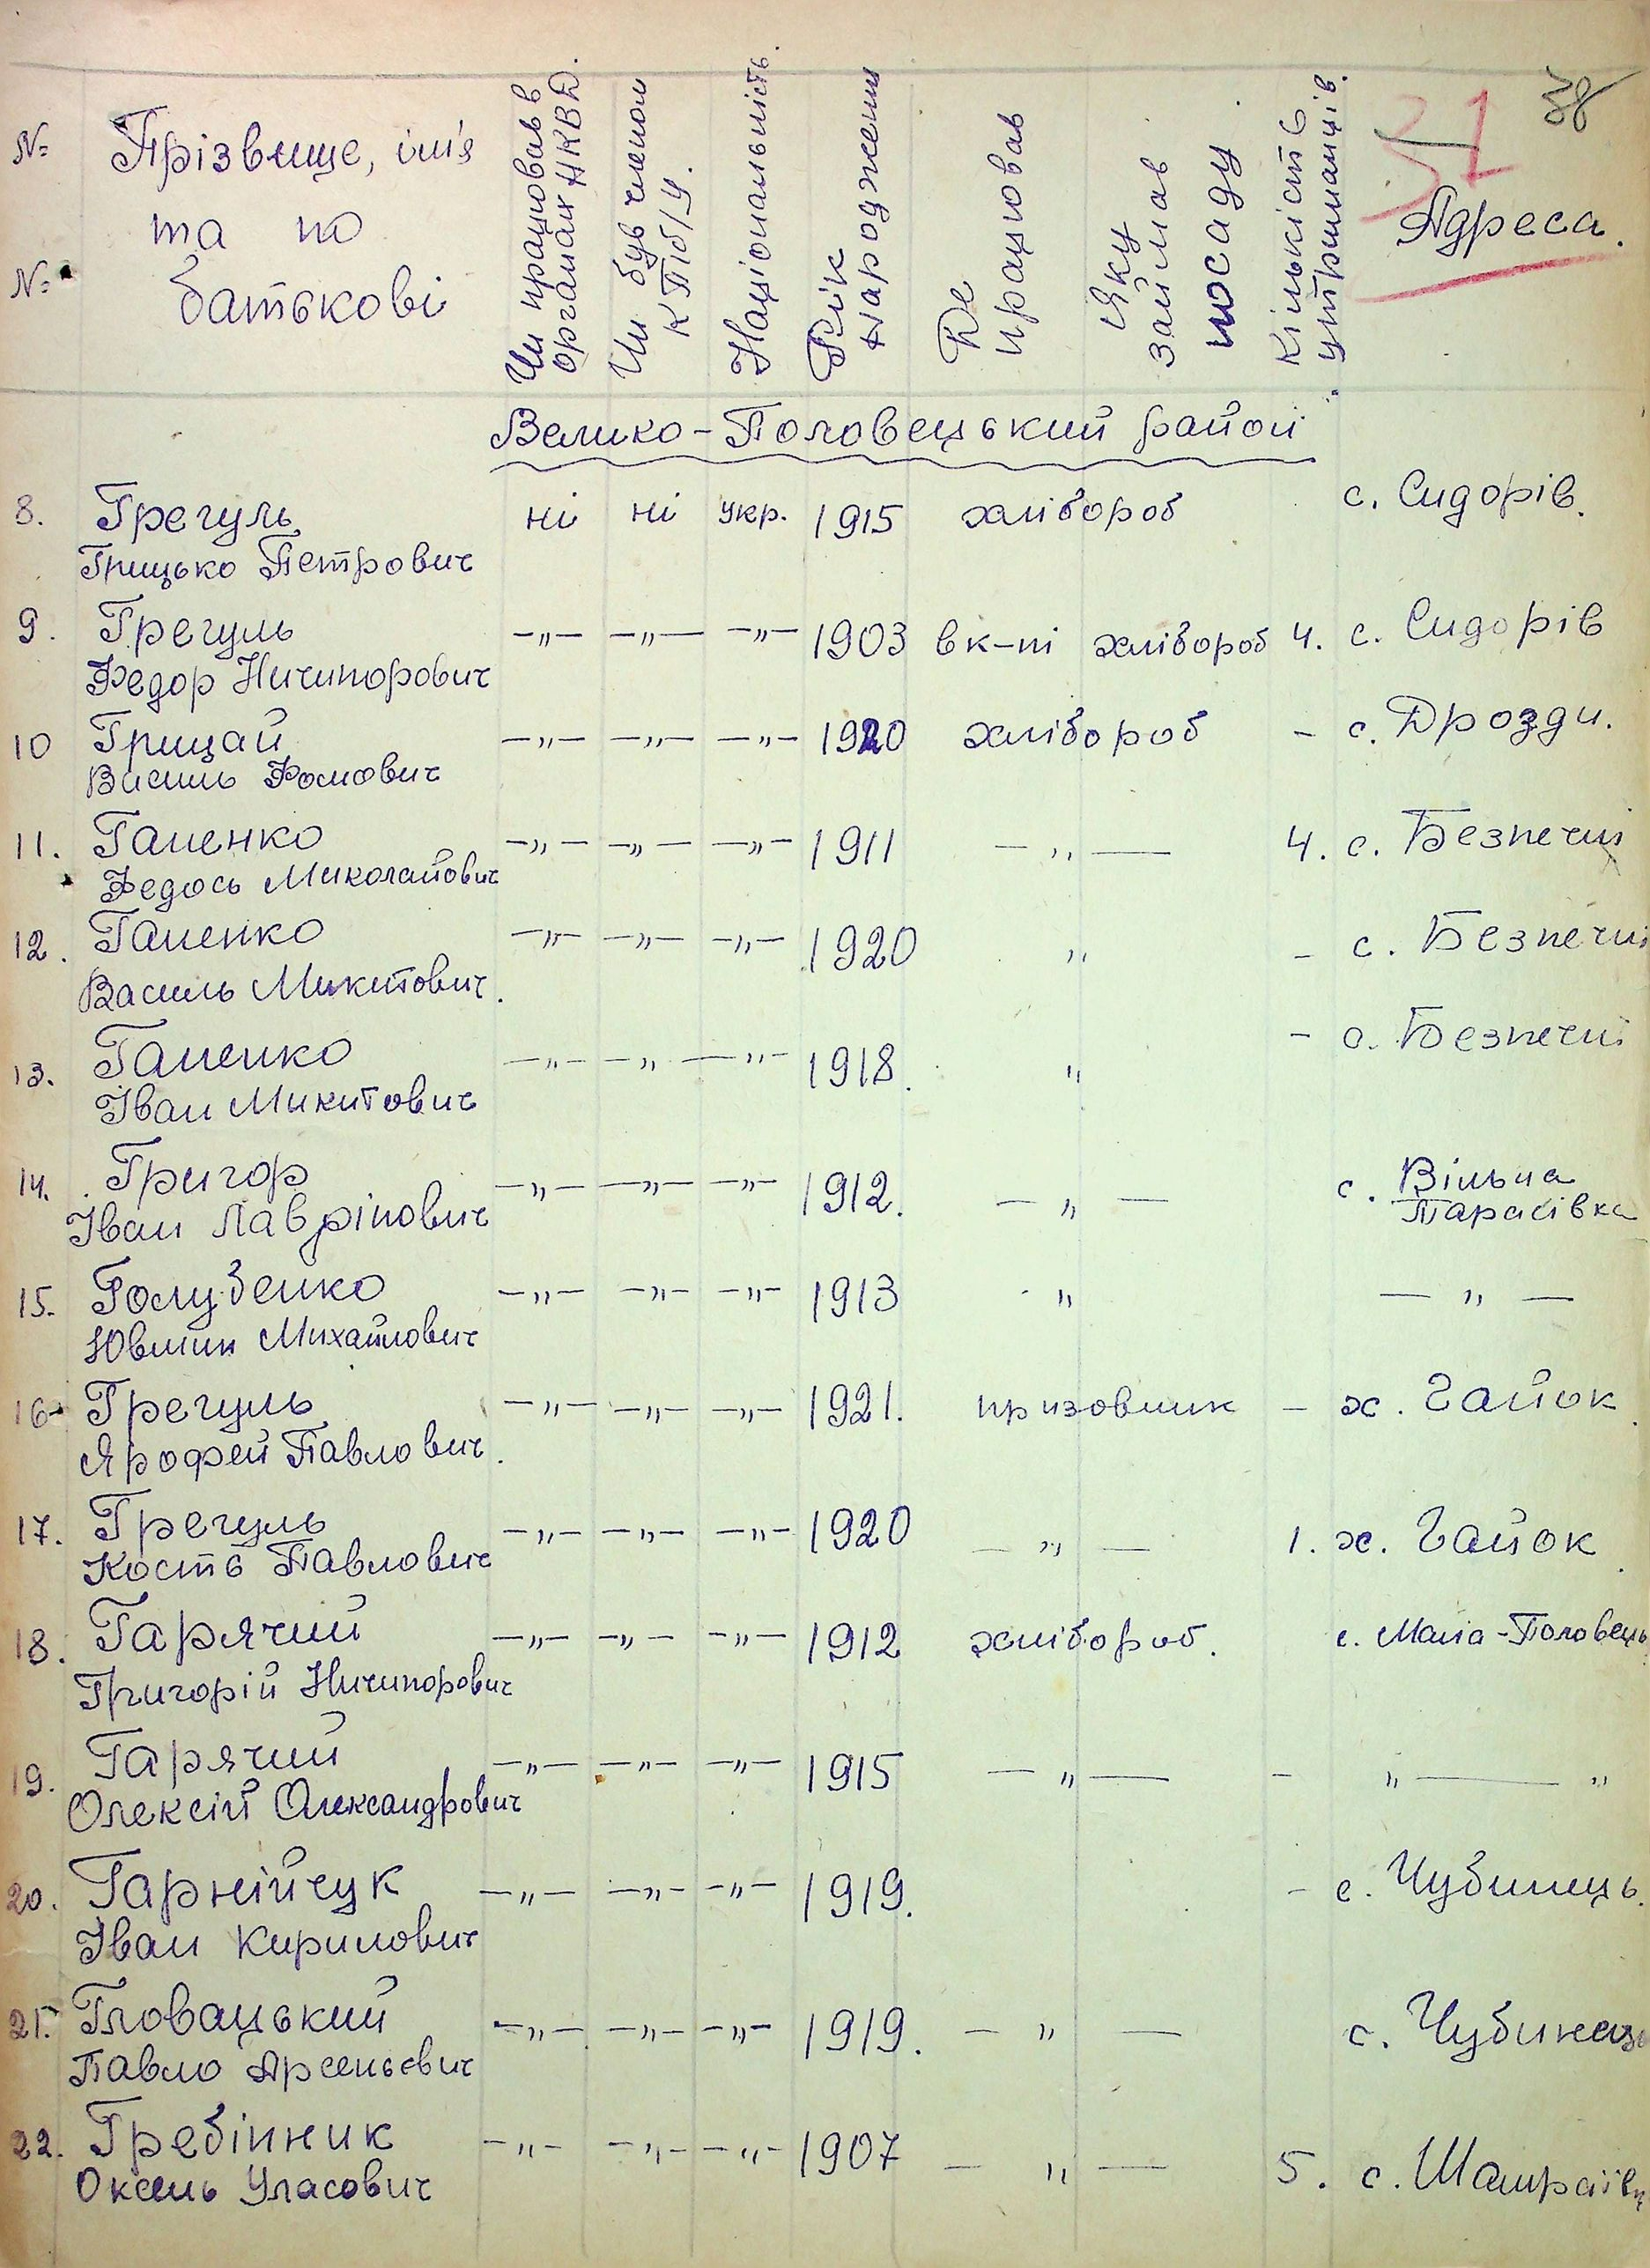 38
31
№ Прізвище, ім'я та по батькові
№
Чи працював в органах НКВД.
Чи був членом КП/б/У.
Національність.
Рік народження
Де працював
Яку займав посаду
Кількість утриманців.
Адреса.
Велико-Половецький район
8. Грегуль ні ні укр. 1915 хлібороб с. Сидорів.
Грицько Петрович
9. Грегуль -„- -„- -„- 1903 вк-пі хлібороб 4. с. Сидорів
Федор Ничипорович
10 Грицай -„- -„- -„- 1920 хлібороб - с. Дрозди.
Василь Фомович
11. Гапенко -„- -„- -„- 1911 -„- 4. с. Безпечні
Федось Миколайович
12. Гапенко -„- -„- -„- 1920 „ - с. Безпечні
Василь Микитович.
13. Гапенко -„- -„- -„- 1918. „ - с. Безпечні
Іван Микитович
14. Григор -„- -„- -„- 1912. -„- с. Вільна Тарасівка
Іван Лаврінович
15. Голубенко -„- -„- -„- 1913 „ -„-
Михайлович
16. Грегуль -„- -„- -„- 1921. призовник - х. Гайок.
Ярофей Павлович.
17. Грегуль -„- -„- -„- 1920 -„- 1. х. Гайок.
Кость Павлович
18. Гарячий -„- -„- -„- 1912 хлібороб. с. Мала-Половець
Григорій Ничипорович
19. Гарячий -„- -„- -„- 1915 -„- - „ — „
Олексій Олександрович
20. Гарнійчук -„- -„- -„- 1919. - с. Чубинець.
Іван Кирилович
21. Гловацький -„- -„- -„- 1919. -„- с. Чубинець
Павло Арсеньєвич
22. Гребінник -„- -„- -„- 1907 -„- 5. с. Шамраївк
Оксень Уласович